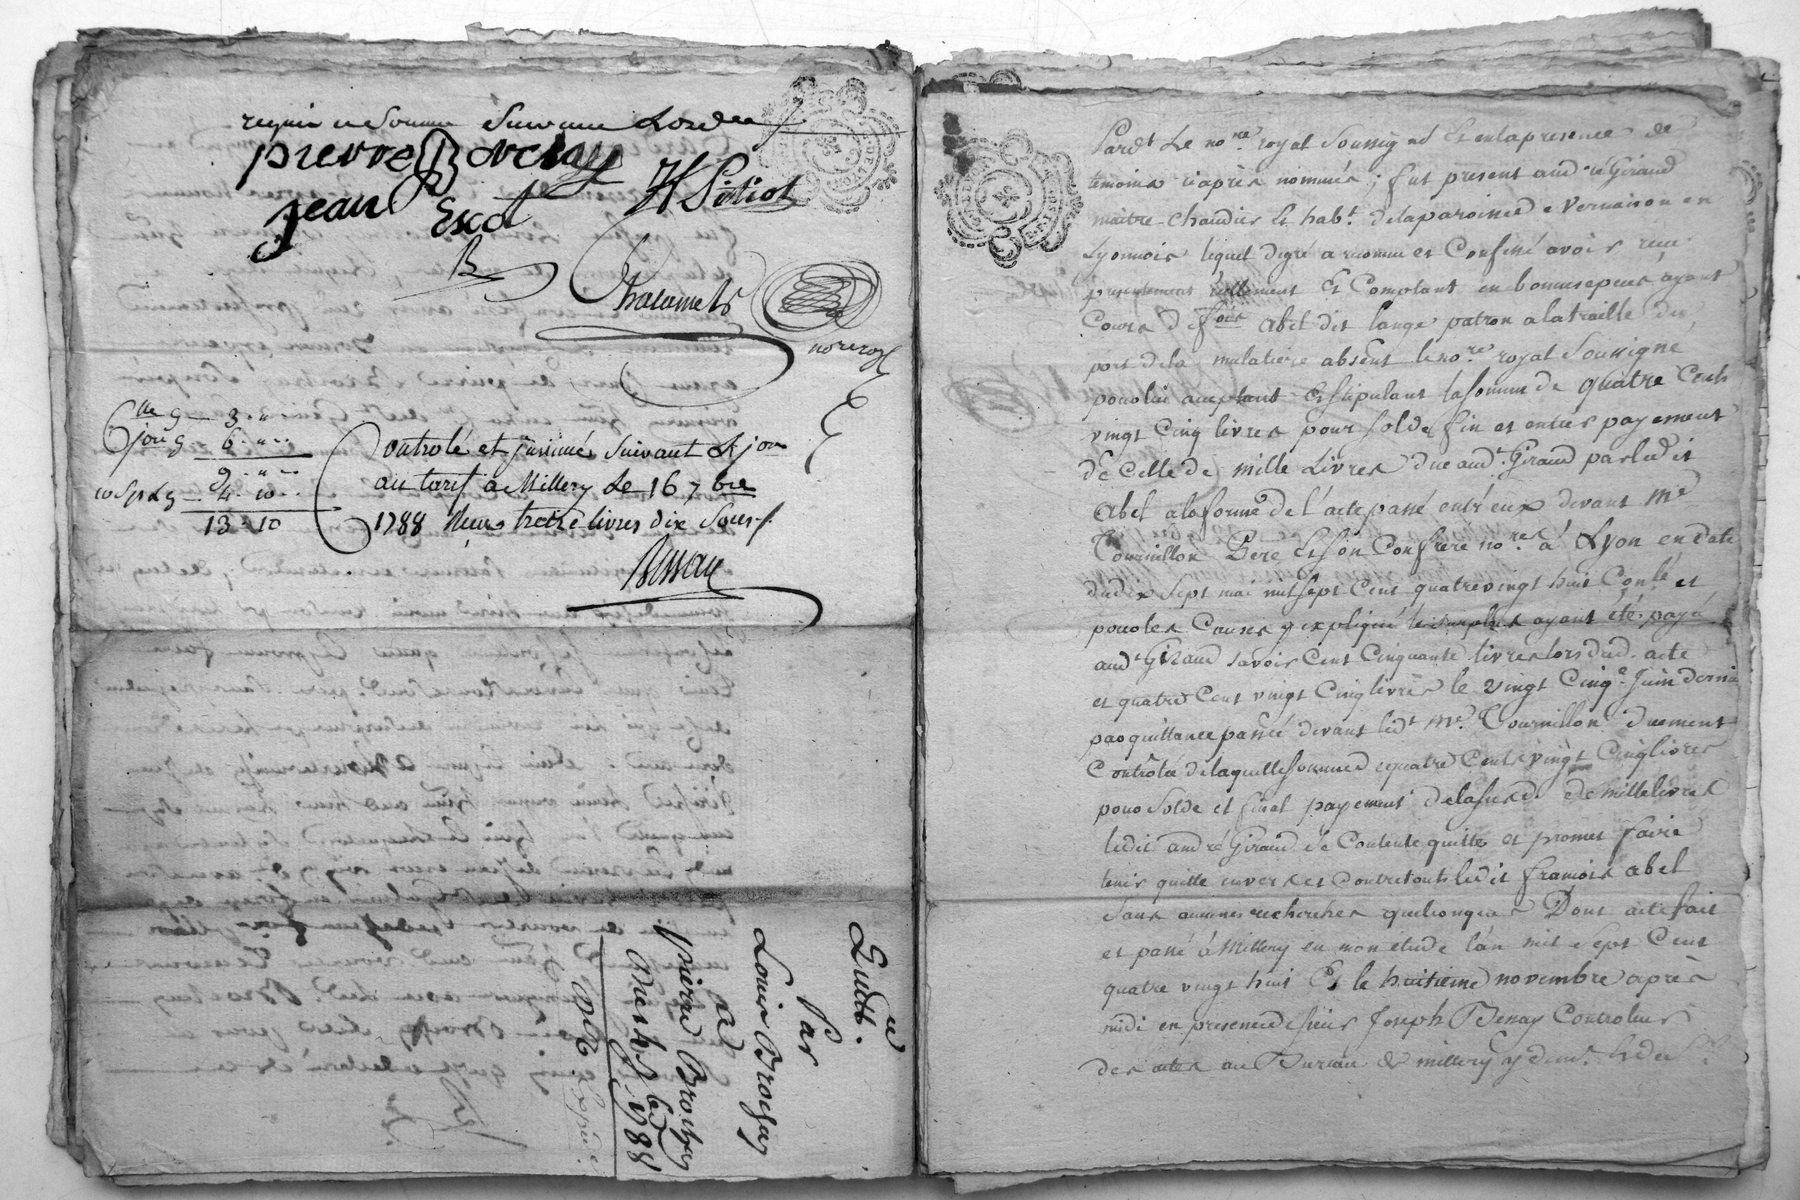 requis et Somme Suivant Lordce
pierre Brochay
jean Escot
H Pitiot
Chalamel
no re roy
Clle 9 — 3 . "
jou 9 — 6 . "
9 . "
10 s p L 9 — 4 . 10
13 . 10
Controlé et insinué Suivant Le jour
au tarif à Millery Le 16 7bre
1788 Reçu treize livres dix Sous
Quittce
Par
Louis Brochay
a
pierre Brochay
1788
Pardt Le nore royal Soussigné Et en la presence de
temoins cy après nommés ; fut present andré Giraud
maitre chandier Et habt de la paroisse de Vernaison en
Lyonnois lequel de gré a reconnu et Confessé avoir reçu
presentement réellement Et Comptant en bonnes especes ayant
Cours de fois Abel dit lange patron a la traille du
port de la mulatiere absent le nore royal Soussigné
pour lui acceptant Et stipulant la somme de quatre Cents
vingt Cinq livres pour solde fin et entier payement
de Celle de mille Livres due audt Giraud par ledit
Abel a la forme de l'acte passé entr'eux devant Me
Tournillon Pere Et son Confrere nores à Lyon en date
du dix Sept mai mil sept Cent quatre vingt huit Conlé et
pour les Causes y expliquées le surplus ayant été payé
audt Giraud savoir Cent Cinquante livres lors dud. acte
et quatre Cent vingt Cinq livres le vingt Cinqe Juin dernier
par quittance passée devant ledt Me Tournillon duement
Contrôlée de laquelle somme de quatre Cents vingt Cinq livres
pour Solde et final payement de la susd. de mille livres
ledit andré Giraud Se Contente quitte et promet faire
tenir quitte envers et Contre touts ledit francois abel
Sans aucunes recherches quelconques Dont acte fait
et passé à Millery en mon étude l'an mil sept Cent
quatre vingt huit Et le huitieme novembre après
midi en presence de sieur Joseph Benay Controleur
des actes au Bureau de millery y demt. Et de Sr